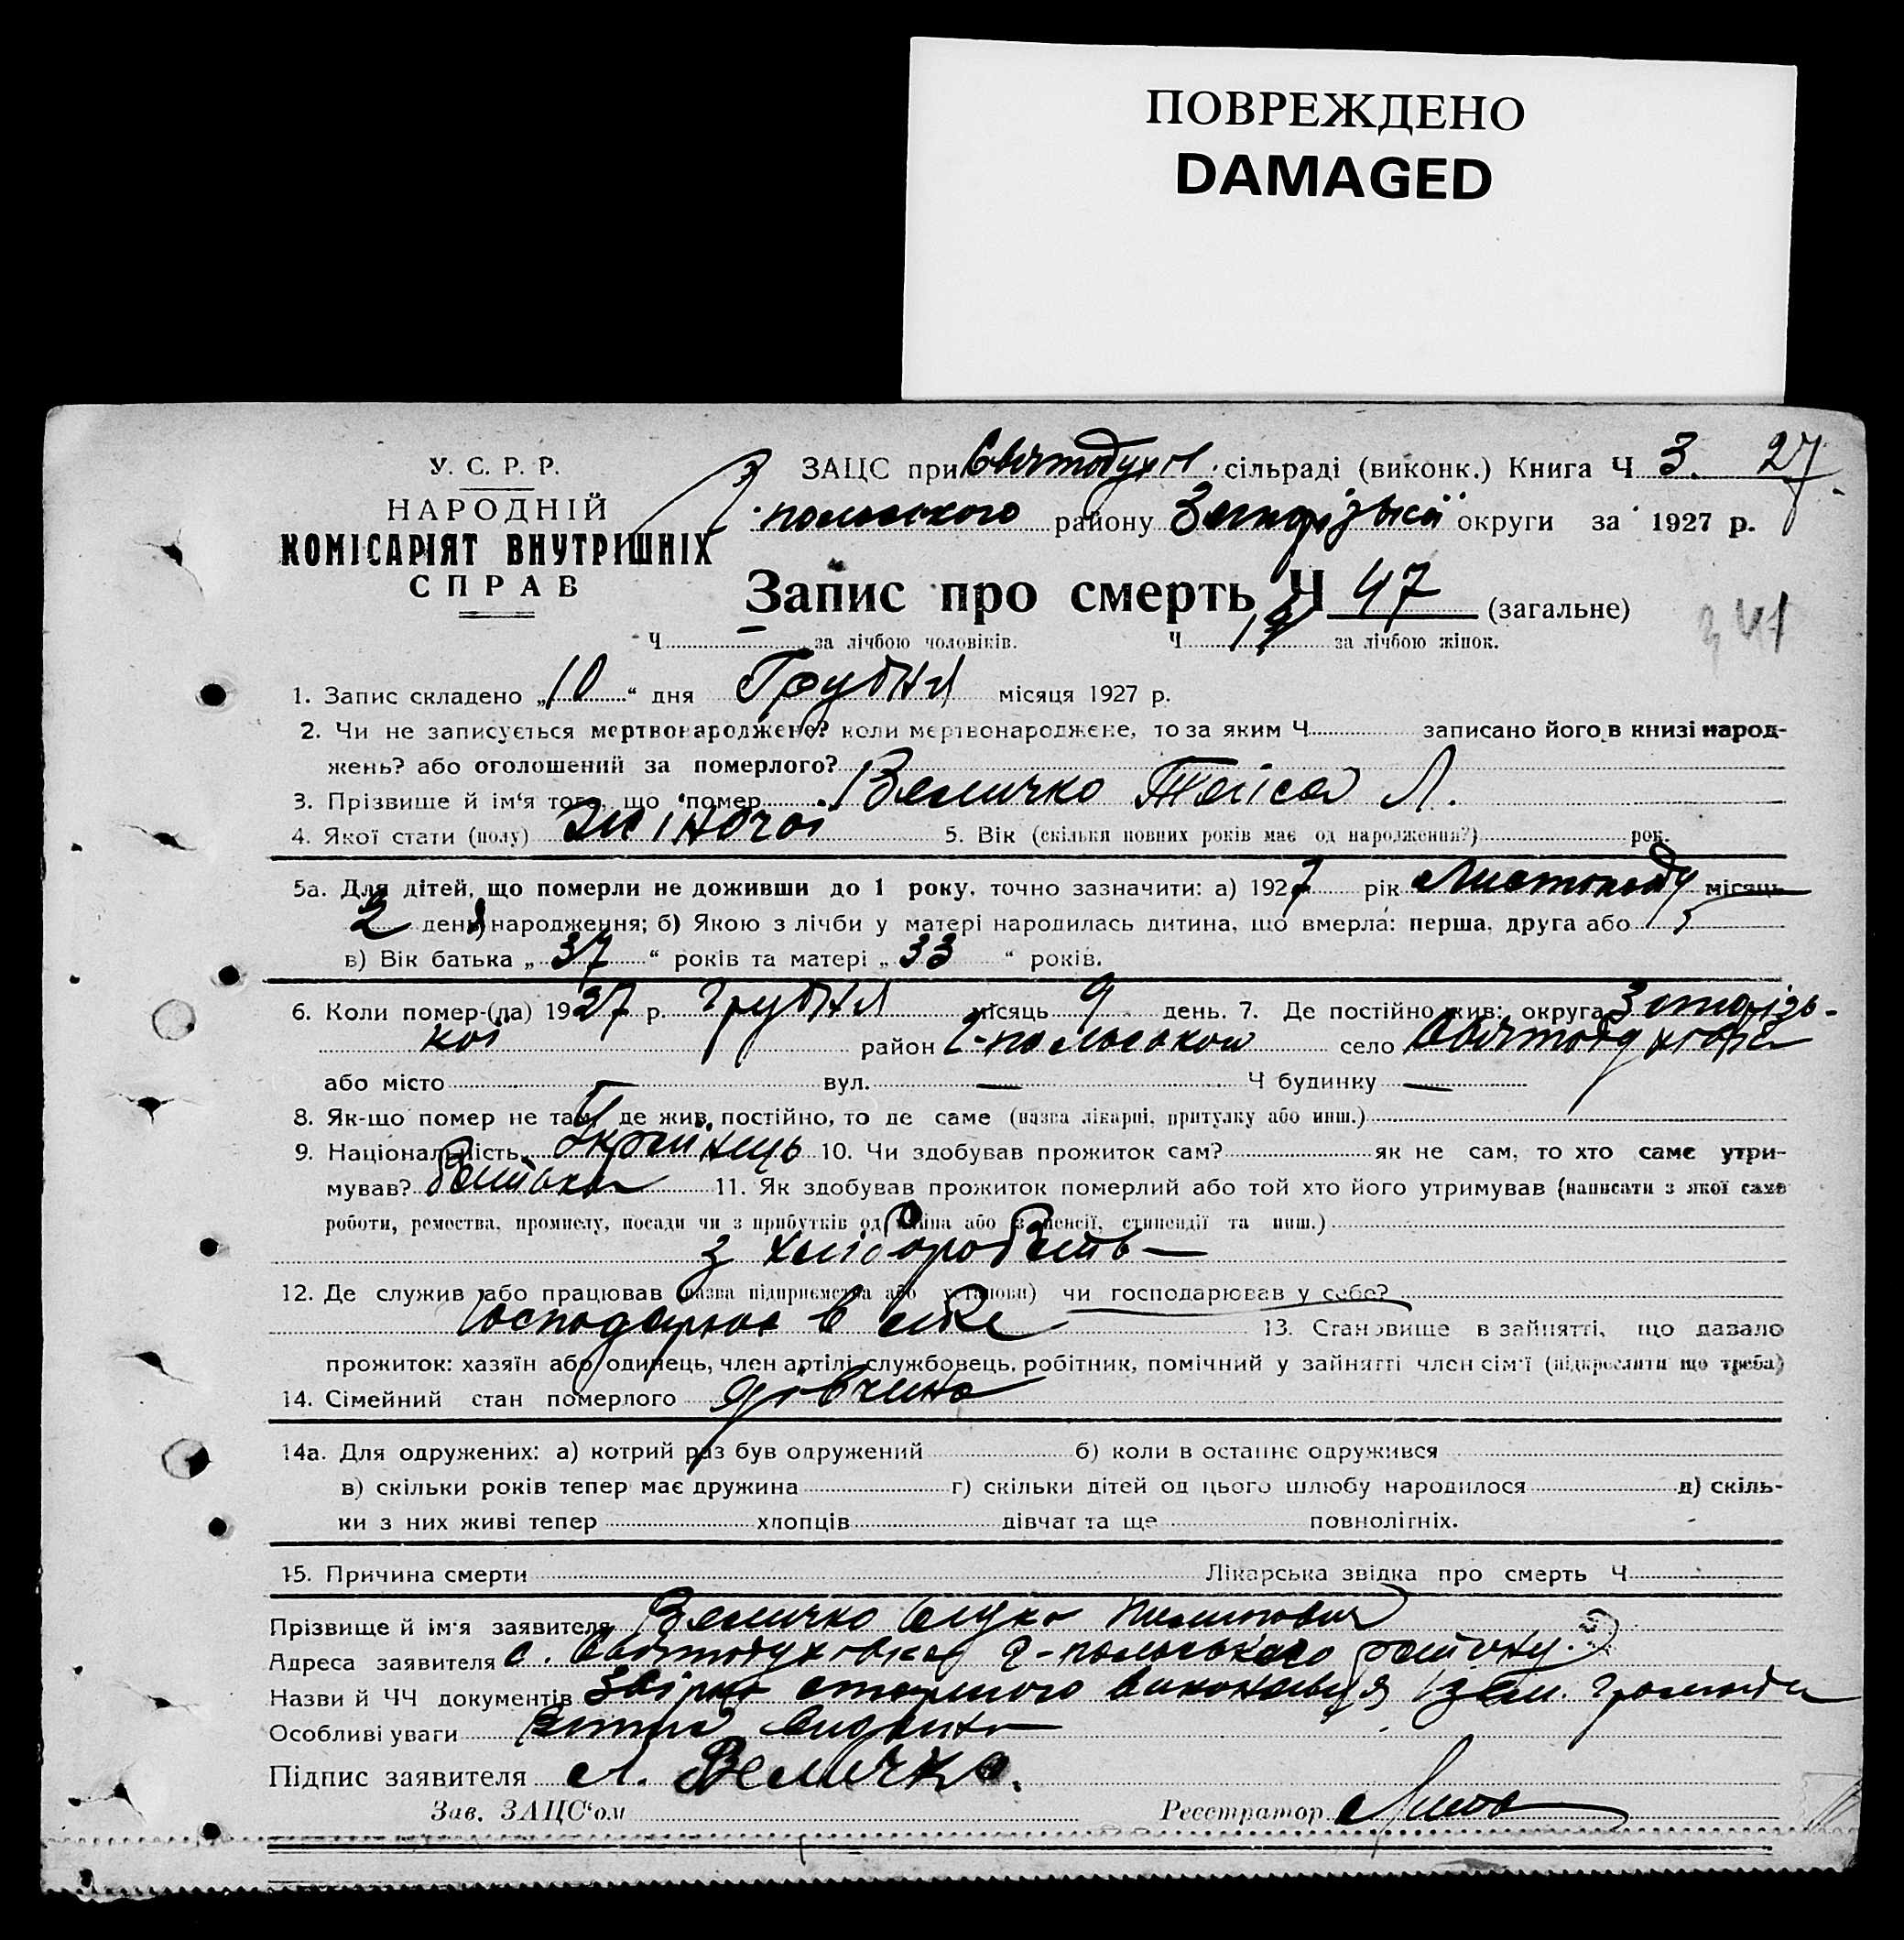 ПОВРЕЖДЕНО
DAMAGED
У. С. Р. Р.
НАРОДНІЙ
КОМІСАРІЯТ ВНУТРІШНІХ
СПРАВ
ЗАЦС при Святодух сільраді (виконк.) Книга Ч 3. 27
польського району Запорізької округи за 1927 р.
Запис про смерть Ч 47 (загальне)
341
Ч — за лічбою чоловіків. Ч 19 за лічбою жінок.
1. Запис складено „10“ дня Грудня місяця 1927 р.
2. Чи не записується мертвонароджене? коли мертвонароджене, то за яким Ч записано його в книзі народ-
жень? або оголошений за померлого?
3. Прізвище й ім‘я того, що помер Величко Таїса Л.
4. Якої стати (полу) жіночої 5. Вік (скільки повних років має од народження?) рок.
5а. Для дітей, що померли не доживши до 1 року, точно зазначити: а) 1927 рік Листопаду місяць
2 день народження; б) Якою з лічби у матері народилась дитина, що вмерла: перша, друга або 5
в) Вік батька „37“ років та матері „33“ років.
6. Коли помер-(ла) 1927 р. Грудня місяць 9 день. 7. Де постійно жив: округа Запорізь-
кої район Г-польськом село Святодухівка
або місто — вул. — Ч будинку —
8. Як-що помер не там, де жив, постійно, то де саме (назва лікарні, притулку або инш.)
9. Національність Українець 10. Чи здобував прожиток сам? як не сам, то хто саме утри-
мував? Батьки 11. Як здобував прожиток померлий або той хто його утримував (написати з якої саме
роботи, ремества, промислу, посади чи з прибутків од майна або з пенсії, стипендії та инш.)
з хліборобств—
12. Де служив або працював (назва підприємства або установи) чи господарював у себе?
Господарює в себе 13. Становище в зайнятті, що давало
прожиток: хазяїн або одинець, член артілі, службовець, робітник, помічний у зайнятті член сім‘ї (підкреслити що треба)
14. Сімейний стан померлого дівчина
14а. Для одружених: а) котрий раз був одружений б) коли в останнє одружився
в) скільки років тепер має дружина г) скільки дітей од цього шлюбу народилося д) скіль-
ки з них живі тепер хлопців дівчат та ще повнолітніх.
15. Причина смерти Лікарська звідка про смерть Ч
Прізвище й ім‘я заявителя Величко Лука Пилипович
Адреса заявителя с. Святодухівка Г-польського району.
Назви й ЧЧ документів старшого виконавця зем. громади
Особливі уваги
Підпис заявителя Л. Величко.
Зав. ЗАЦС‘ом Реєстратор